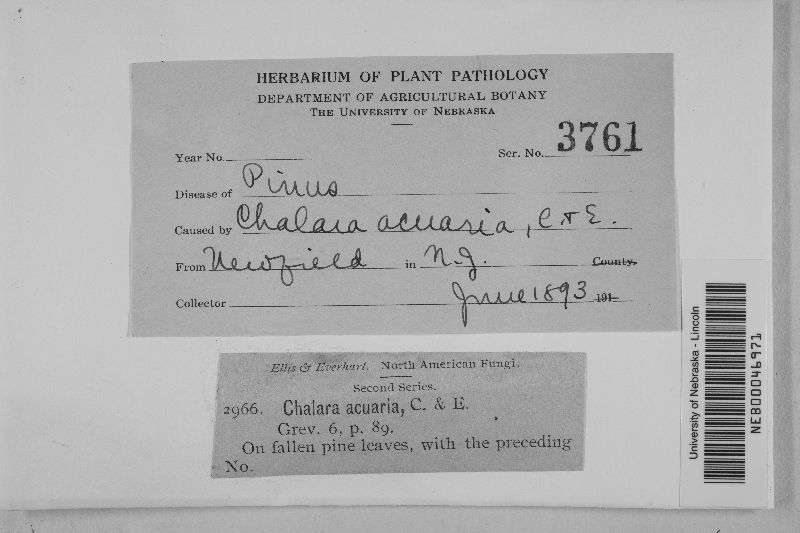 HERBARIUM OF PLANT PATHOLOGY
DEPARTMENT OF AGRICULTURAL BOTANY
THE UNIVERSITY OF NEBRASKA
Year No. Ser. No. 3761
Disease of Pinus
Caused by Chalara acuaria, C & E.
From Newfield in N.J. County.
Collector June 1893 191
Ellis & Everhart. North American Fungi.
Second Series.
2966. Chalara acuaria, C. & E.
Grev. 6, p. 89.
On fallen pine leaves, with the preceding
No.
University of Nebraska - Lincoln
NEB00046971